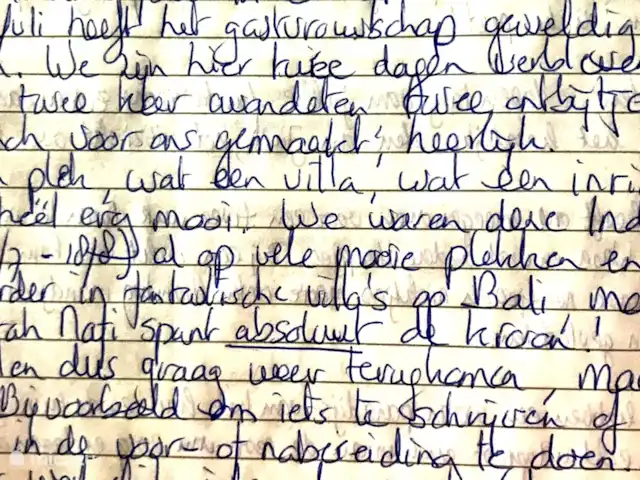 Juli heeft het gastvrouwschap geweldig
. We zijn hier twee dagen
twee keer avondeten, twee ontbijtje
ch voor ons gemaakt, heerlijk.
plek, wat een villa, wat een inri
heel erg mooi. We waren deze Ind
/7 - 18/8) al op vele mooie plekken en
rder in fantastische villa's op Bali, ma
ah Nati spant absoluut de kroon!
en dus graag weer terugkomen, ma
Bijvoorbeeld om iets te schrijven of
in de voor- of nabereiding te doen.